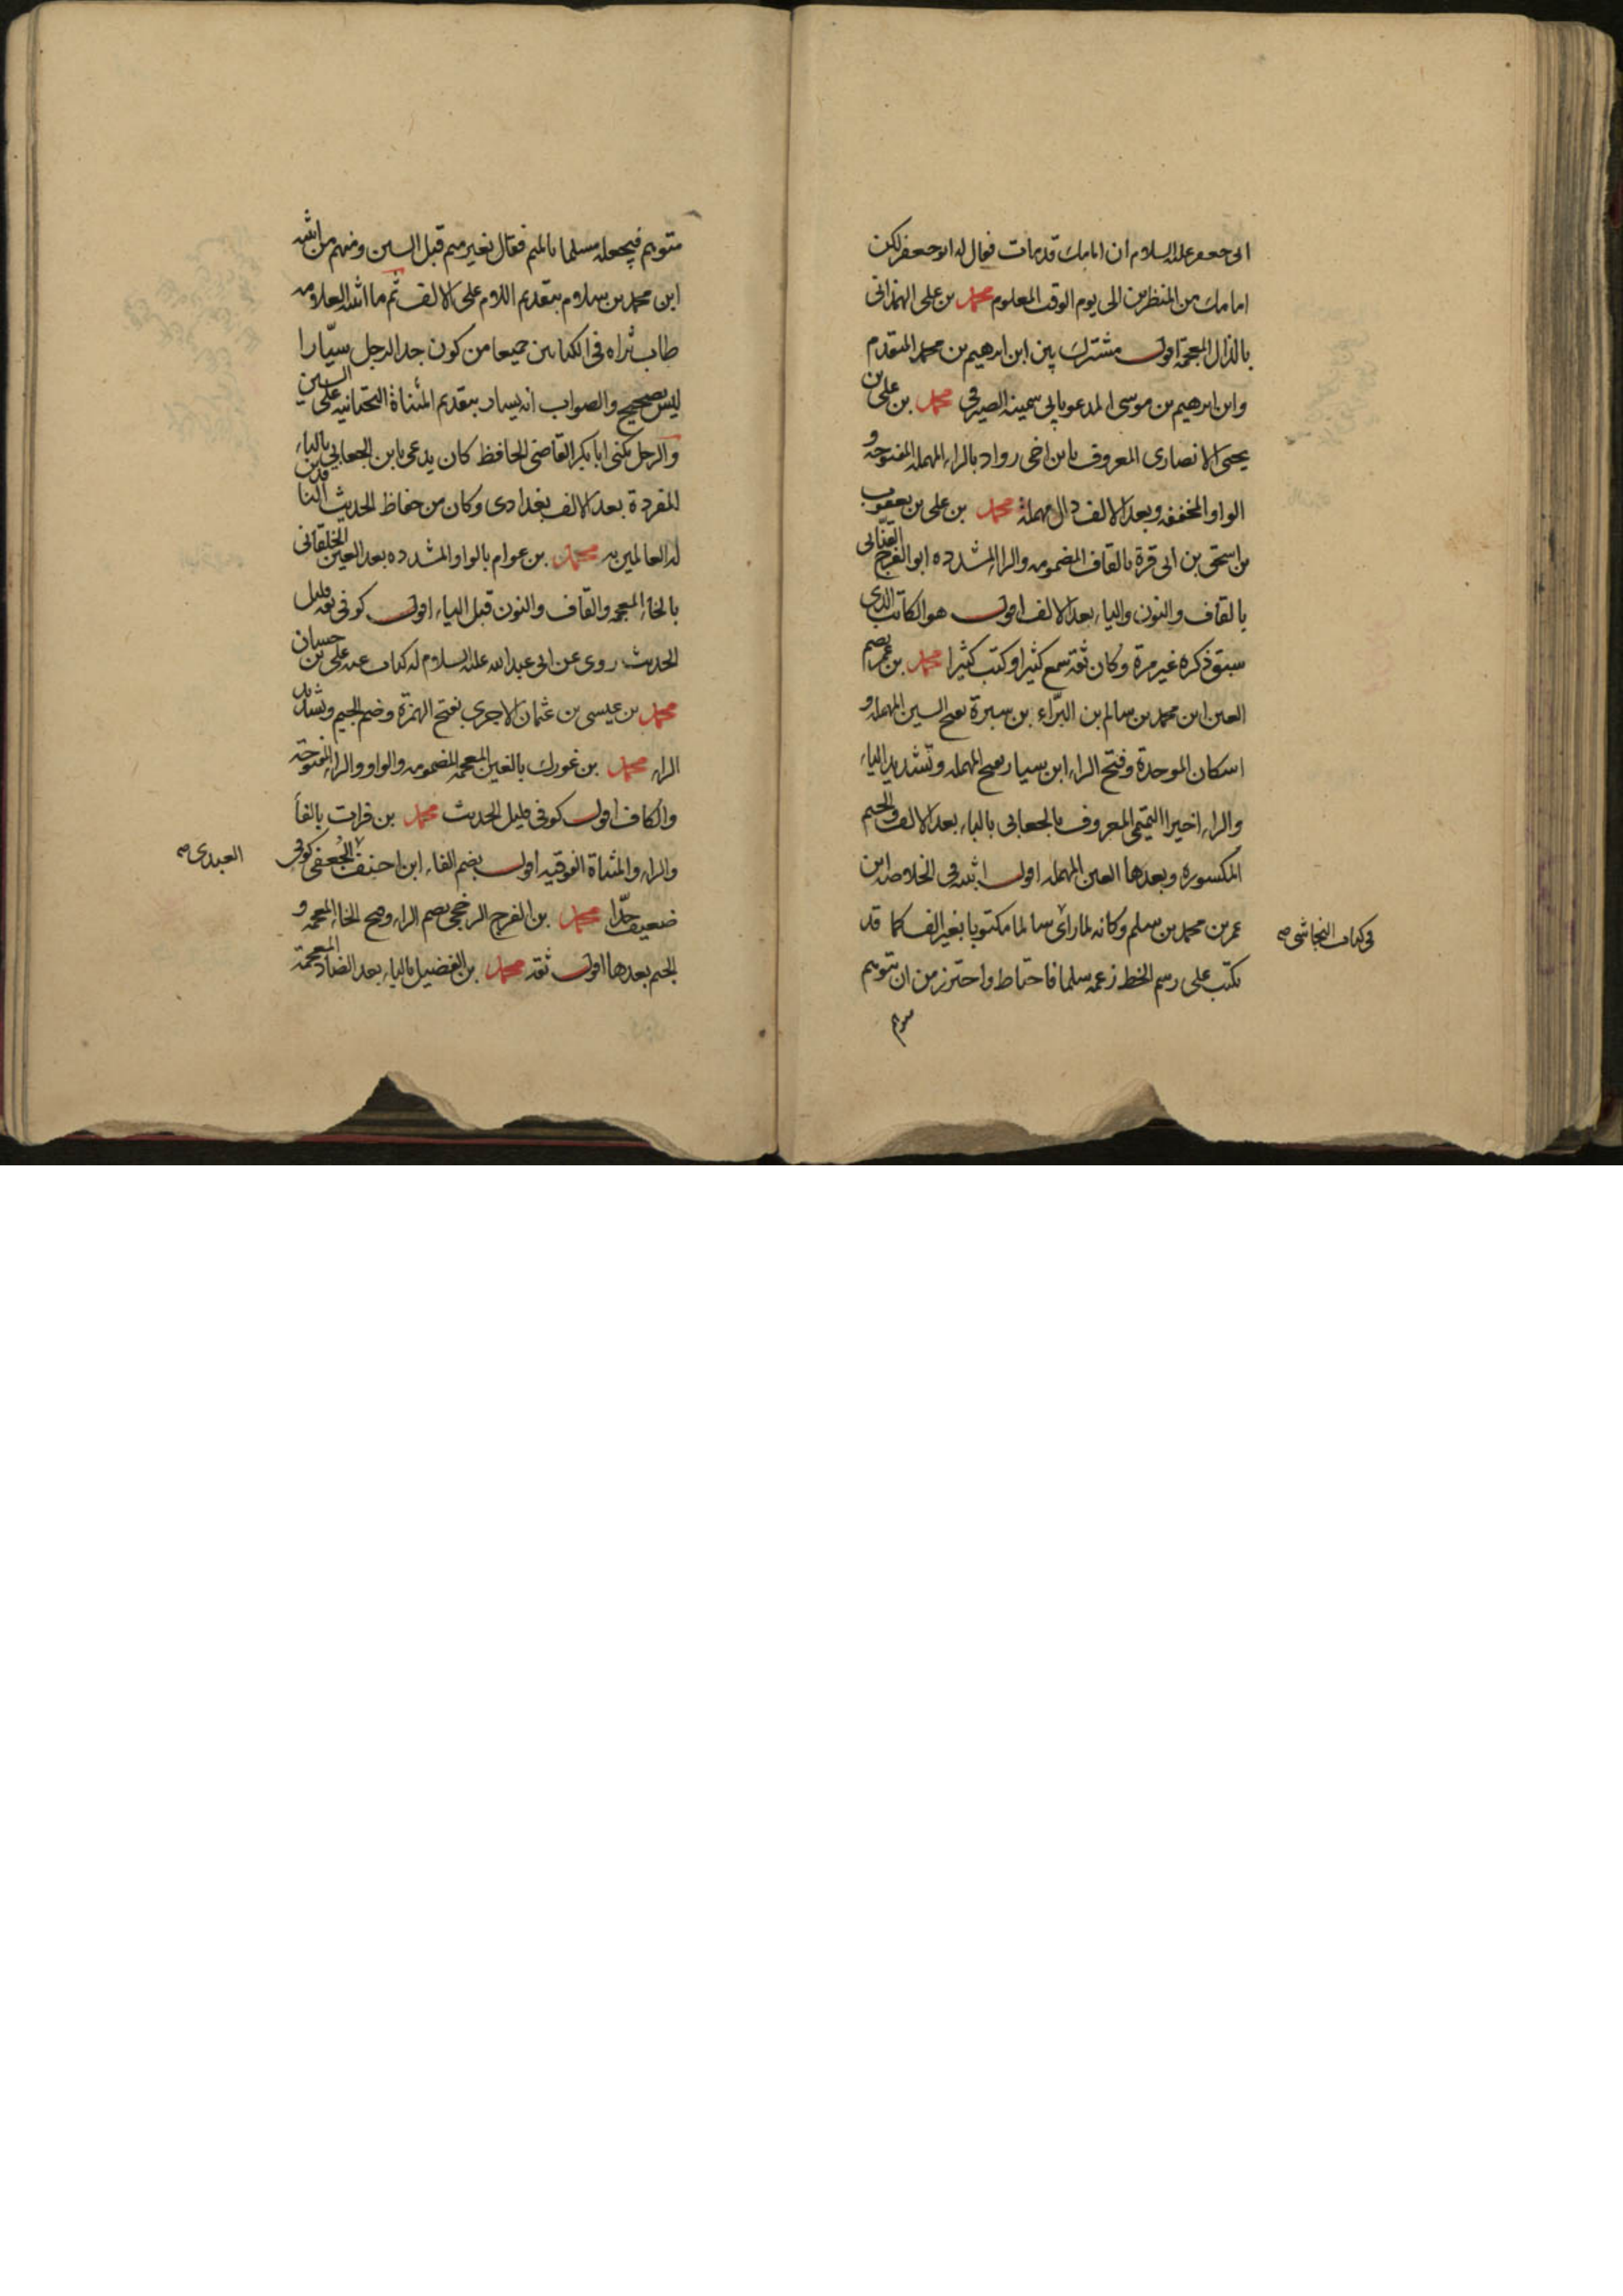 ابى جعفر عليه السلام ان امامك قد مات فقال له ابو جعفر لكن
امامك من المنظرين الى يوم الوقت المعلوم محمد بن على الهمذانى
بالذال المعجمة اقول مشترك بين ابن ابرهيم بن محمد المتقدم
وابن ابرهيم بن موسى المدعو بابى سمينه الصيرفى محمد بن على بن
يحيى الانصارى المعروف بابن اخى رواد بالراء المهملة المفتوحه و
الواو المخففه وبعد الالف دال مهملة محمد بن على بن يعقوب
بن اسحق بن ابى قرة بالقاف المضمومه والراء المشدده ابو الفرج القنائى
بالقاف والنون والياء بعد الالف اقول هو الكاتب الذى
سبق ذكره غير مرة وكان ثقة سمع كثيرا وكتب كثيرا محمد بن عمر بضم
العين ابن محمد بن سالم بن البراء بن سبرة بفتح السين المهمله و
اسكان الموحدة وفتح الراء ابن سيار بفتح المهمله وتشديد الياء
والراء اخيرا التميمى المعروف بالجعابى بالباء بعد الالف والجيم
المكسوره وبعدها العين المهمله اقول اثبته فى الخلاصه ابن
عمر بن محمد بن سلم وكانه لما راى سالما مكتوبا بغير الف كما قد
فى كتاب النجاشى صه
يكتب على رسم الخط زعمه سلما فاحتاط واحترز من ان يتوهم
متوهم
متوهم فيجعله مسلما بالميم فقال بغير ميم قبل السين ومنهم من اثبته
ابن محمد بن سلام بتقديم اللام على الالف ثم ما اثبته العلامه
طاب ثراه فى الكتابين جميعا من كون جد الرجل سيّارا
ليس بصحيح والصواب انه يسار بتقديم المثناة التحتانيه على السين
والرجل يكنى ابا بكر القاضى الحافظ كان يدعى بابن الجعابى بالباء
المفردة بعد الالف بغدادى وكان من حفاظ الحديث الناقدين
له العالمين به محمد بن عوام بالواو المشدده بعد العين الخلقانى
بالخاء المعجمه والقاف والنون قبل الياء اقول كوفى ثقه قليل
الحديث روى عن ابى عبدالله عليه السلام له كتاب عنه على بن حسان
محمد بن عيسى بن عثمان الاجرى بفتح الهمزة وضم الجيم وتشديد
الراء محمد بن غورك بالغين المعجمه المضمومه والواو والراء المفتوحه
والكاف اقول كوفى قليل الحديث محمد بن فرات بالفا
والراء والمثناة الفوقيه اقول بضم الفاء ابن احنف الجعفى كوفى
العبدى صه
ضعيف جدّا محمد بن الفرج الرخجى بضم الراء وفتح الخاء المعجمه و
الجيم بعدها اقول ثقه محمد بن الفضيل بالياء بعد الضاد المعجمة